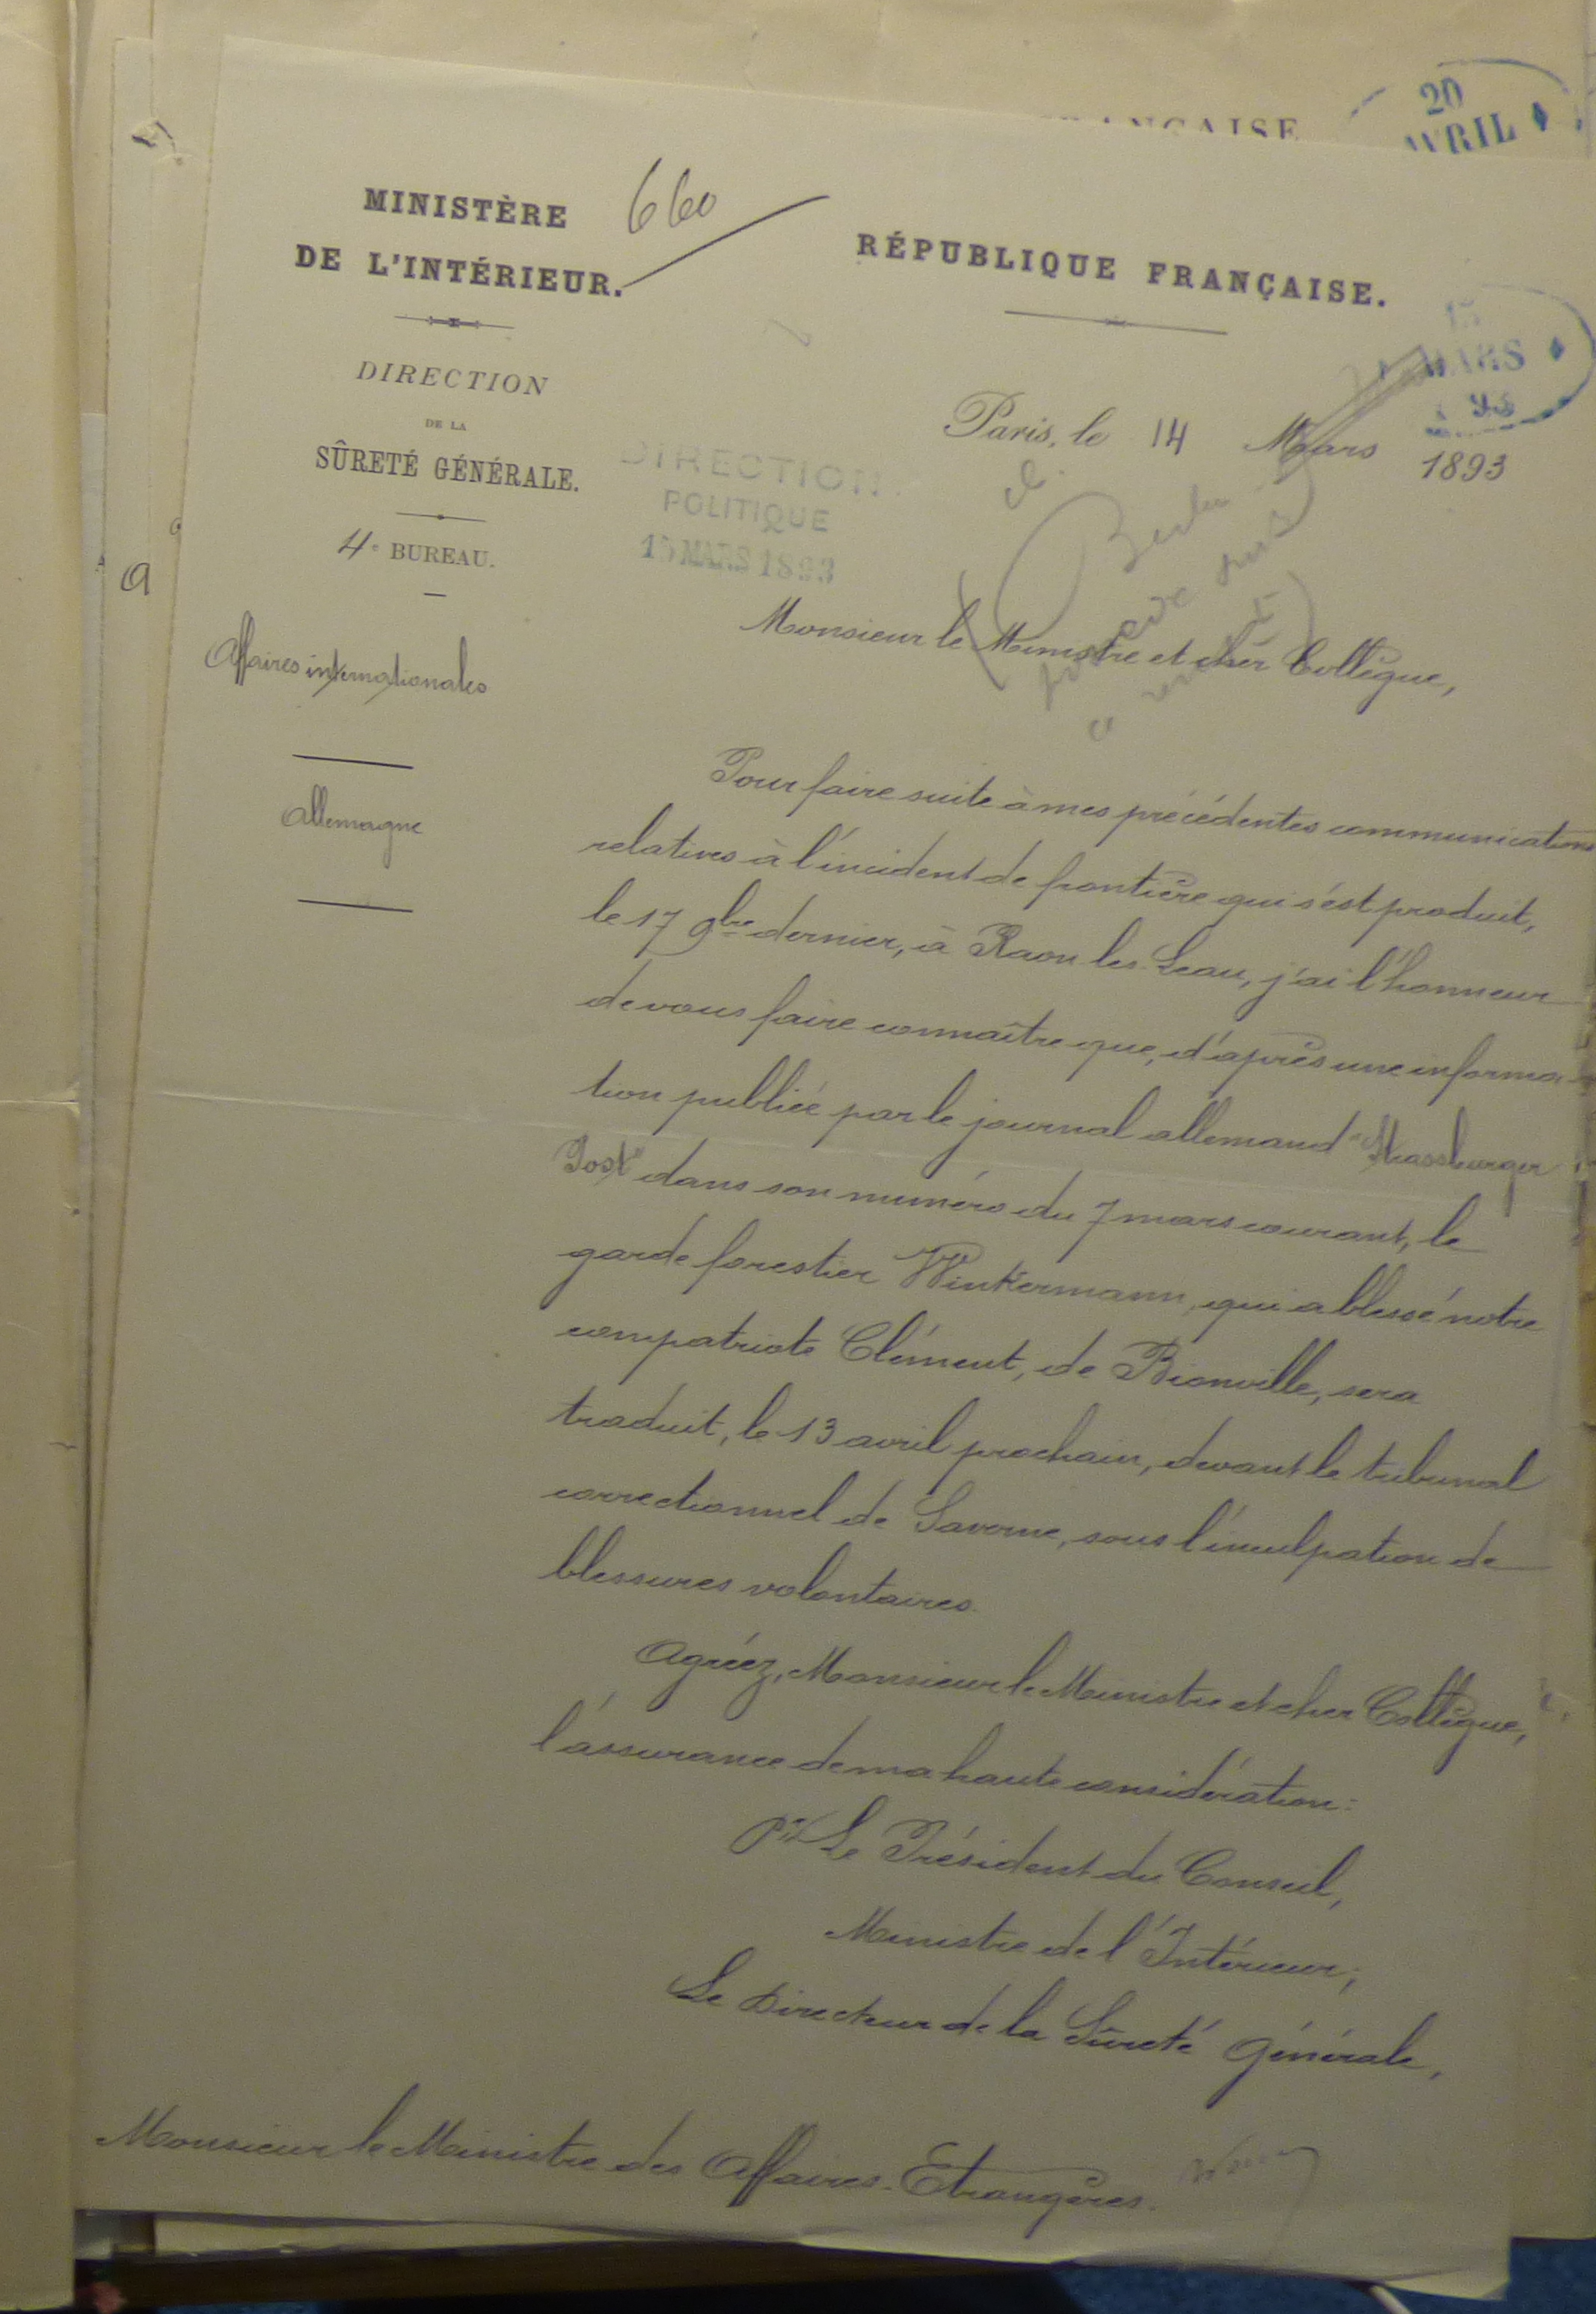 20
AVRIL
MINISTÈRE
DE L'INTÉRIEUR.
660
RÉPUBLIQUE FRANÇAISE.
DIRECTION
DE LA
SÛRETÉ GÉNÉRALE.
4e BUREAU.
Affaires internationales
Allemagne
DIRECTION
POLITIQUE
15 MARS 1893
MARS
93
Paris, le 14 Mars 1893
Monsieur le Ministre et cher Collègue,
Pour faire suite à mes précédentes communications
relatives à l'incident de frontière qui s'est produit,
le 17 9bre dernier, à Raon les Leau, j'ai l'honneur
de vous faire connaître que, d'après une informa-
tion publiée par le journal allemand "Strassburger
Post" dans son numéro du 7 mars courant, le
garde forestier Winkermann, qui a blessé notre
compatriote Clément, de Bionville, sera
traduit, le 13 avril prochain, devant le tribunal
correctionnel de Saverne, sous l'inculpation de
blessures volontaires.
Agréez, Monsieur le Ministre et cher Collègue,
l'assurance de ma haute considération:
Pr Le Président du Conseil,
Ministre de l'Intérieur,
Le Directeur de la Sûreté Générale,
Monsieur le Ministre des Affaires Etrangères.